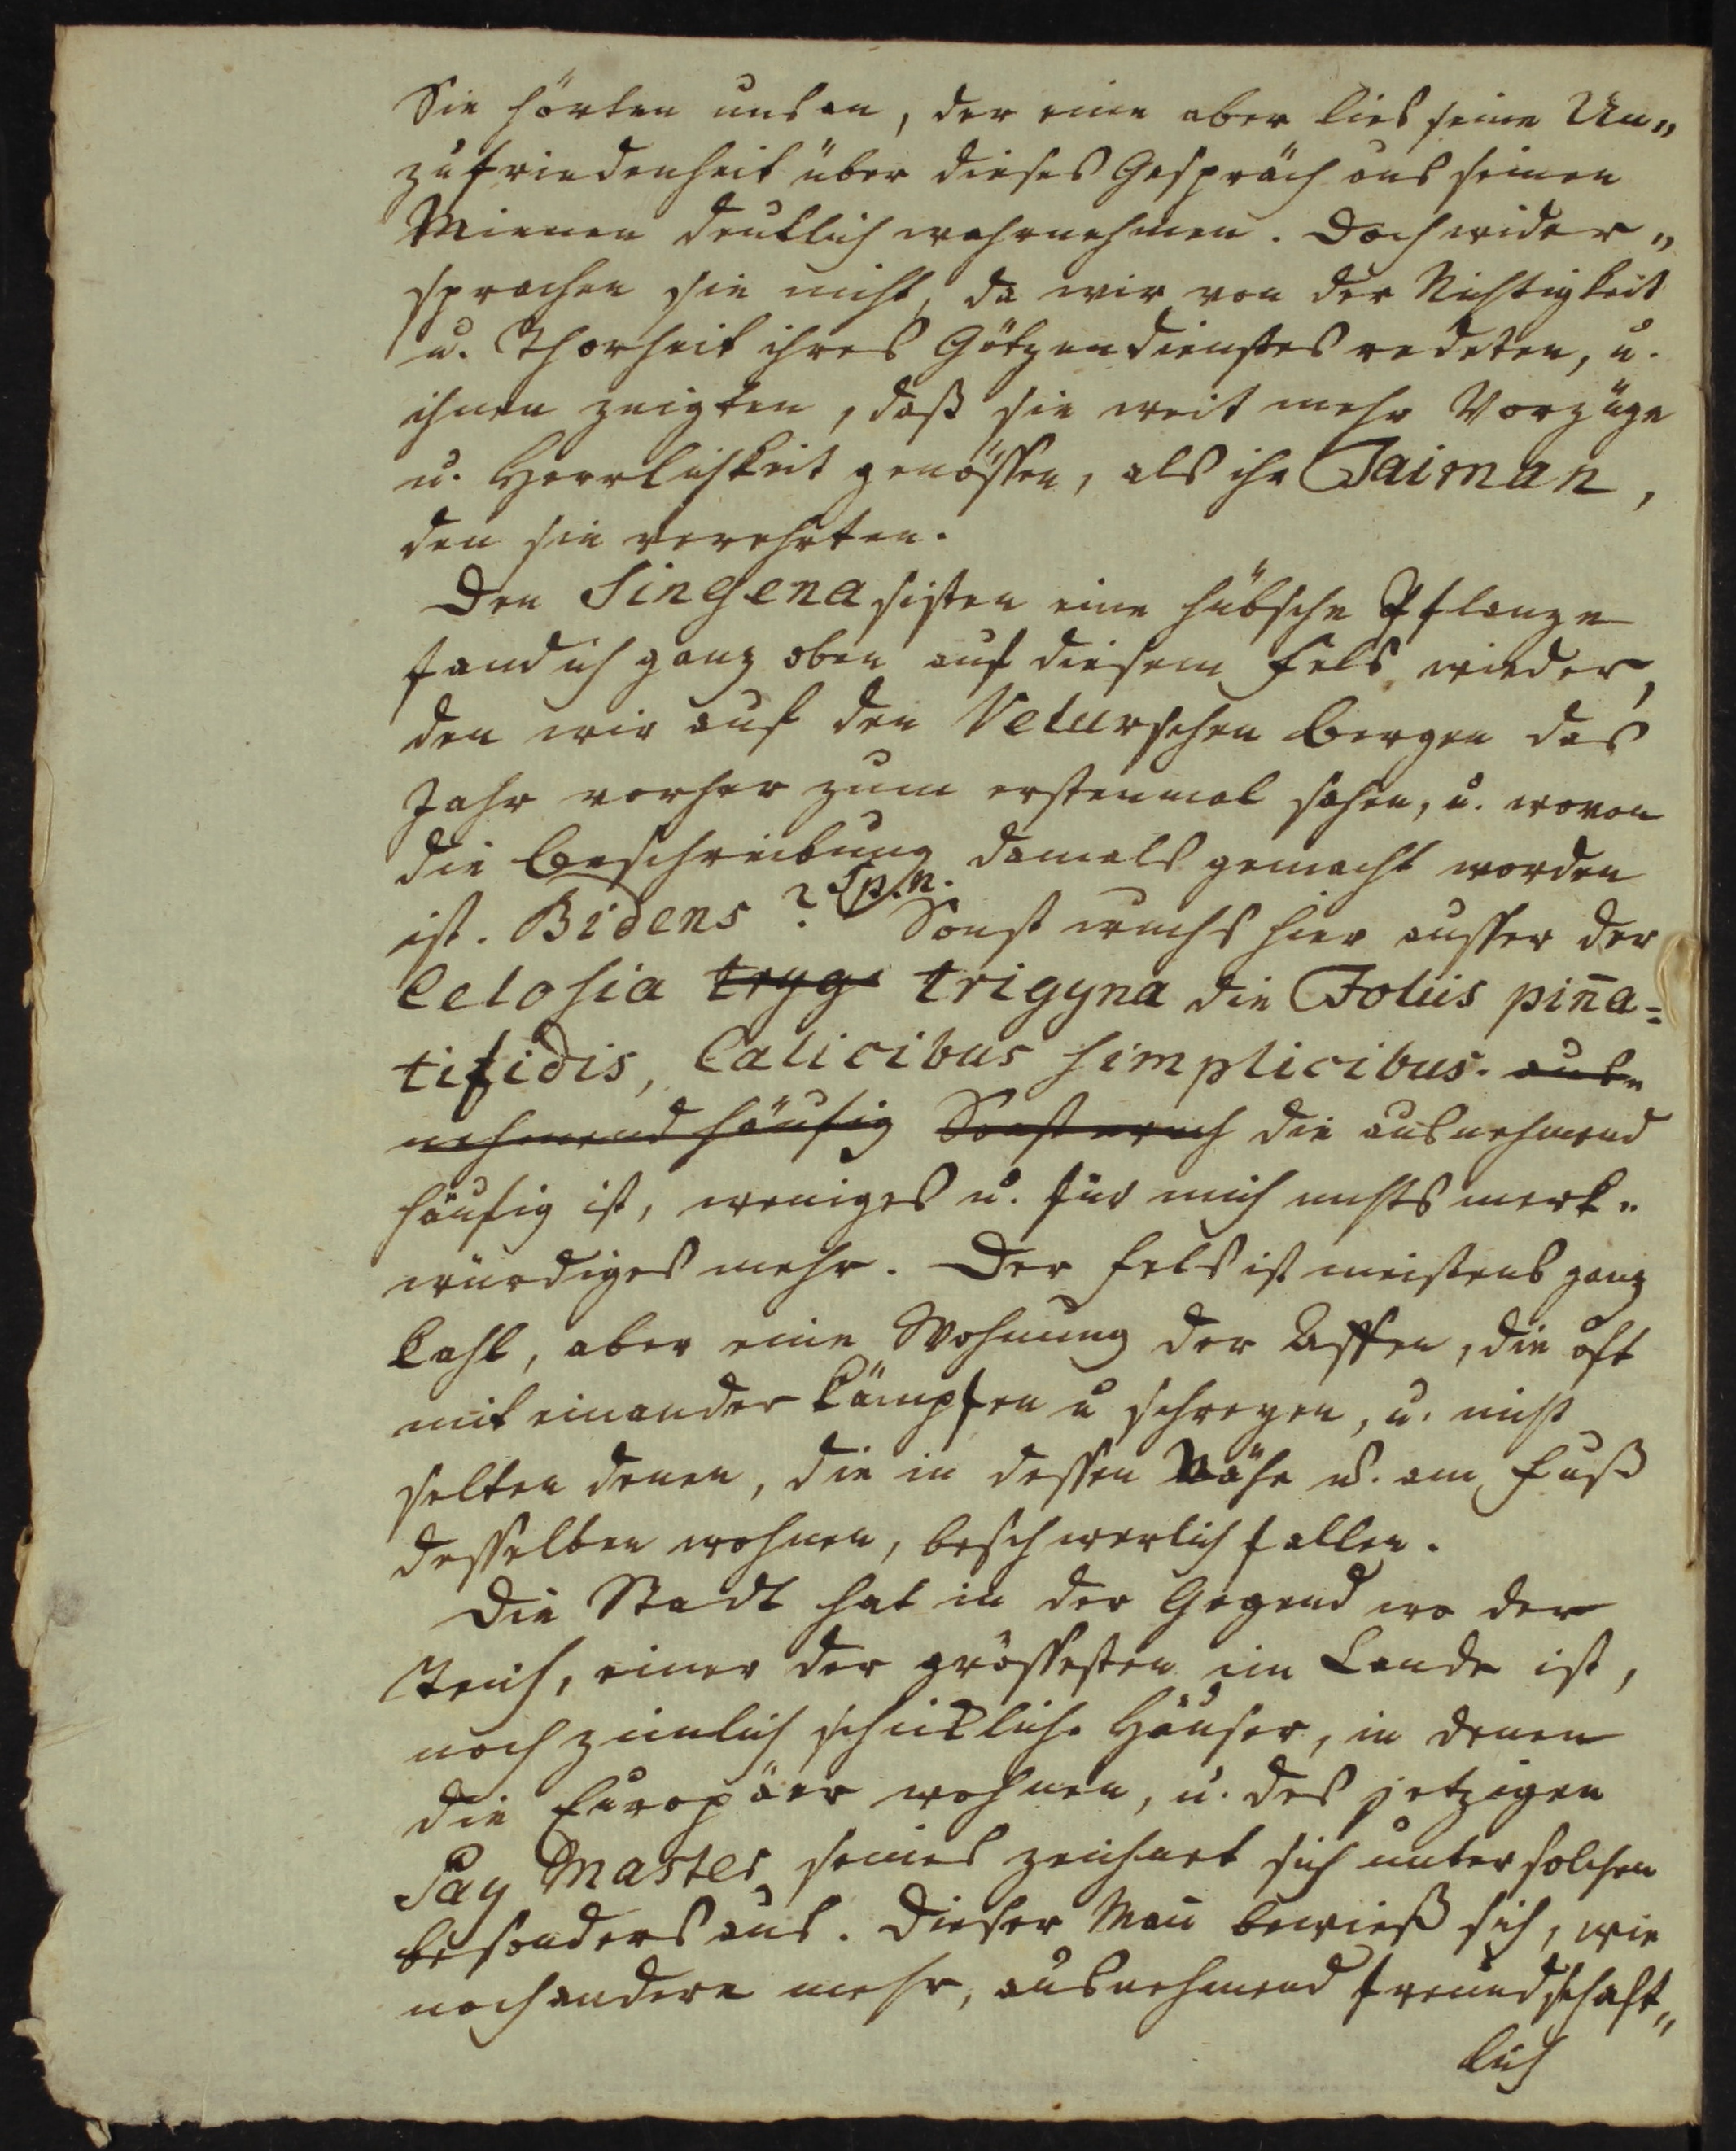 Sie hörten uns an, der eine aber lies seine Un„
zufriedenheit über dieses Gespräch aus seinen
Mienen deutlich wahrnehmen. Doch wider„
sprachen sie nicht, da wir von der Nichtigkeit
u. Thorheit ihres Götzendienstes redeten, u.
ihnen zeigten, daß sie weit mehr Vorzüge
u. Herrlichkeit genössen, als ihr Jaiman,
den sie verehrten.
Den Singena sisten eine hübsche Pflanze
fand ich ganz oben auf diesem Fels wieder,
den wir auf den Velurschen Bergen das
Jahr vorher zum erstenmal sahen, u. wovon
die Beschreibung damals gemacht worden
ist. Bidens? Sp. n. Sonst wuchs hier ausser der
Celosia tryg trigyna die Foliis pin̄a=
tifidis, Calicibus simplicibus. aus„
nehmend häufig Sonst wuch die ausnehmend
häufig ist, weniges u. für mich nichts merk„
würdiges mehr. Der Fels ist meistens ganz
kahl, aber eine Wohnung der Affen, die oft
mit einander kämpfen u schreyen, u. nicht
selten denen, die in dessen Nähe u. am Fuß
desselben wohnen, beschwerlich fallen.
Die Stadt hat in der Gegend wo der
Teich, einer der grössesten im Lande ist,
noch zimlich schickliche Häuser, in denen
die Europäer wohnen, u. des jetzigen
Pay Master seines zeichnet sich unter solchen
besonders aus. Dieser Man̄ bewieß sich, wie
noch andere mehr, ausnehmend freundschaft„
lich